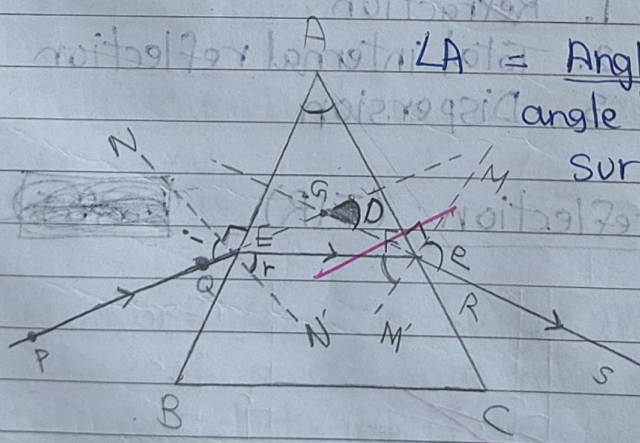 A
∠A = Angl
angle
sur
N
M
G
D
E
F
r
e
Q
N'
M'
R
P
S
B
C